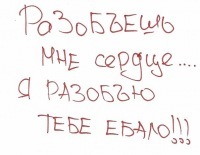 РАЗОБЪЕШЬ
МНЕ сердце....
Я РАЗОБЪЮ
ТЕБЕ ЕБАЛО!!!